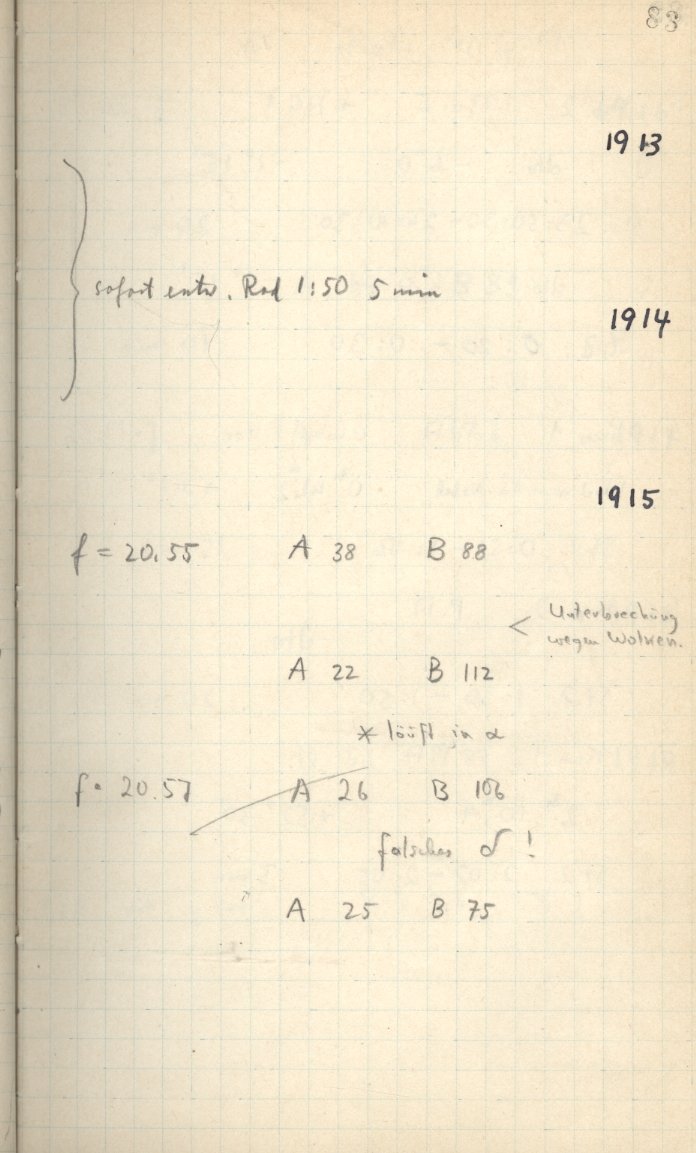 83
1913
sofort entw. Rod 1:50 5 min
1914
1915
f = 20.55 A 38 B 88
< Unterbrechung
wegen Wolken.
A 22 B 112
* läuft in α
f = 20.57 A 26 B 106
falsches δ !
A 25 B 75